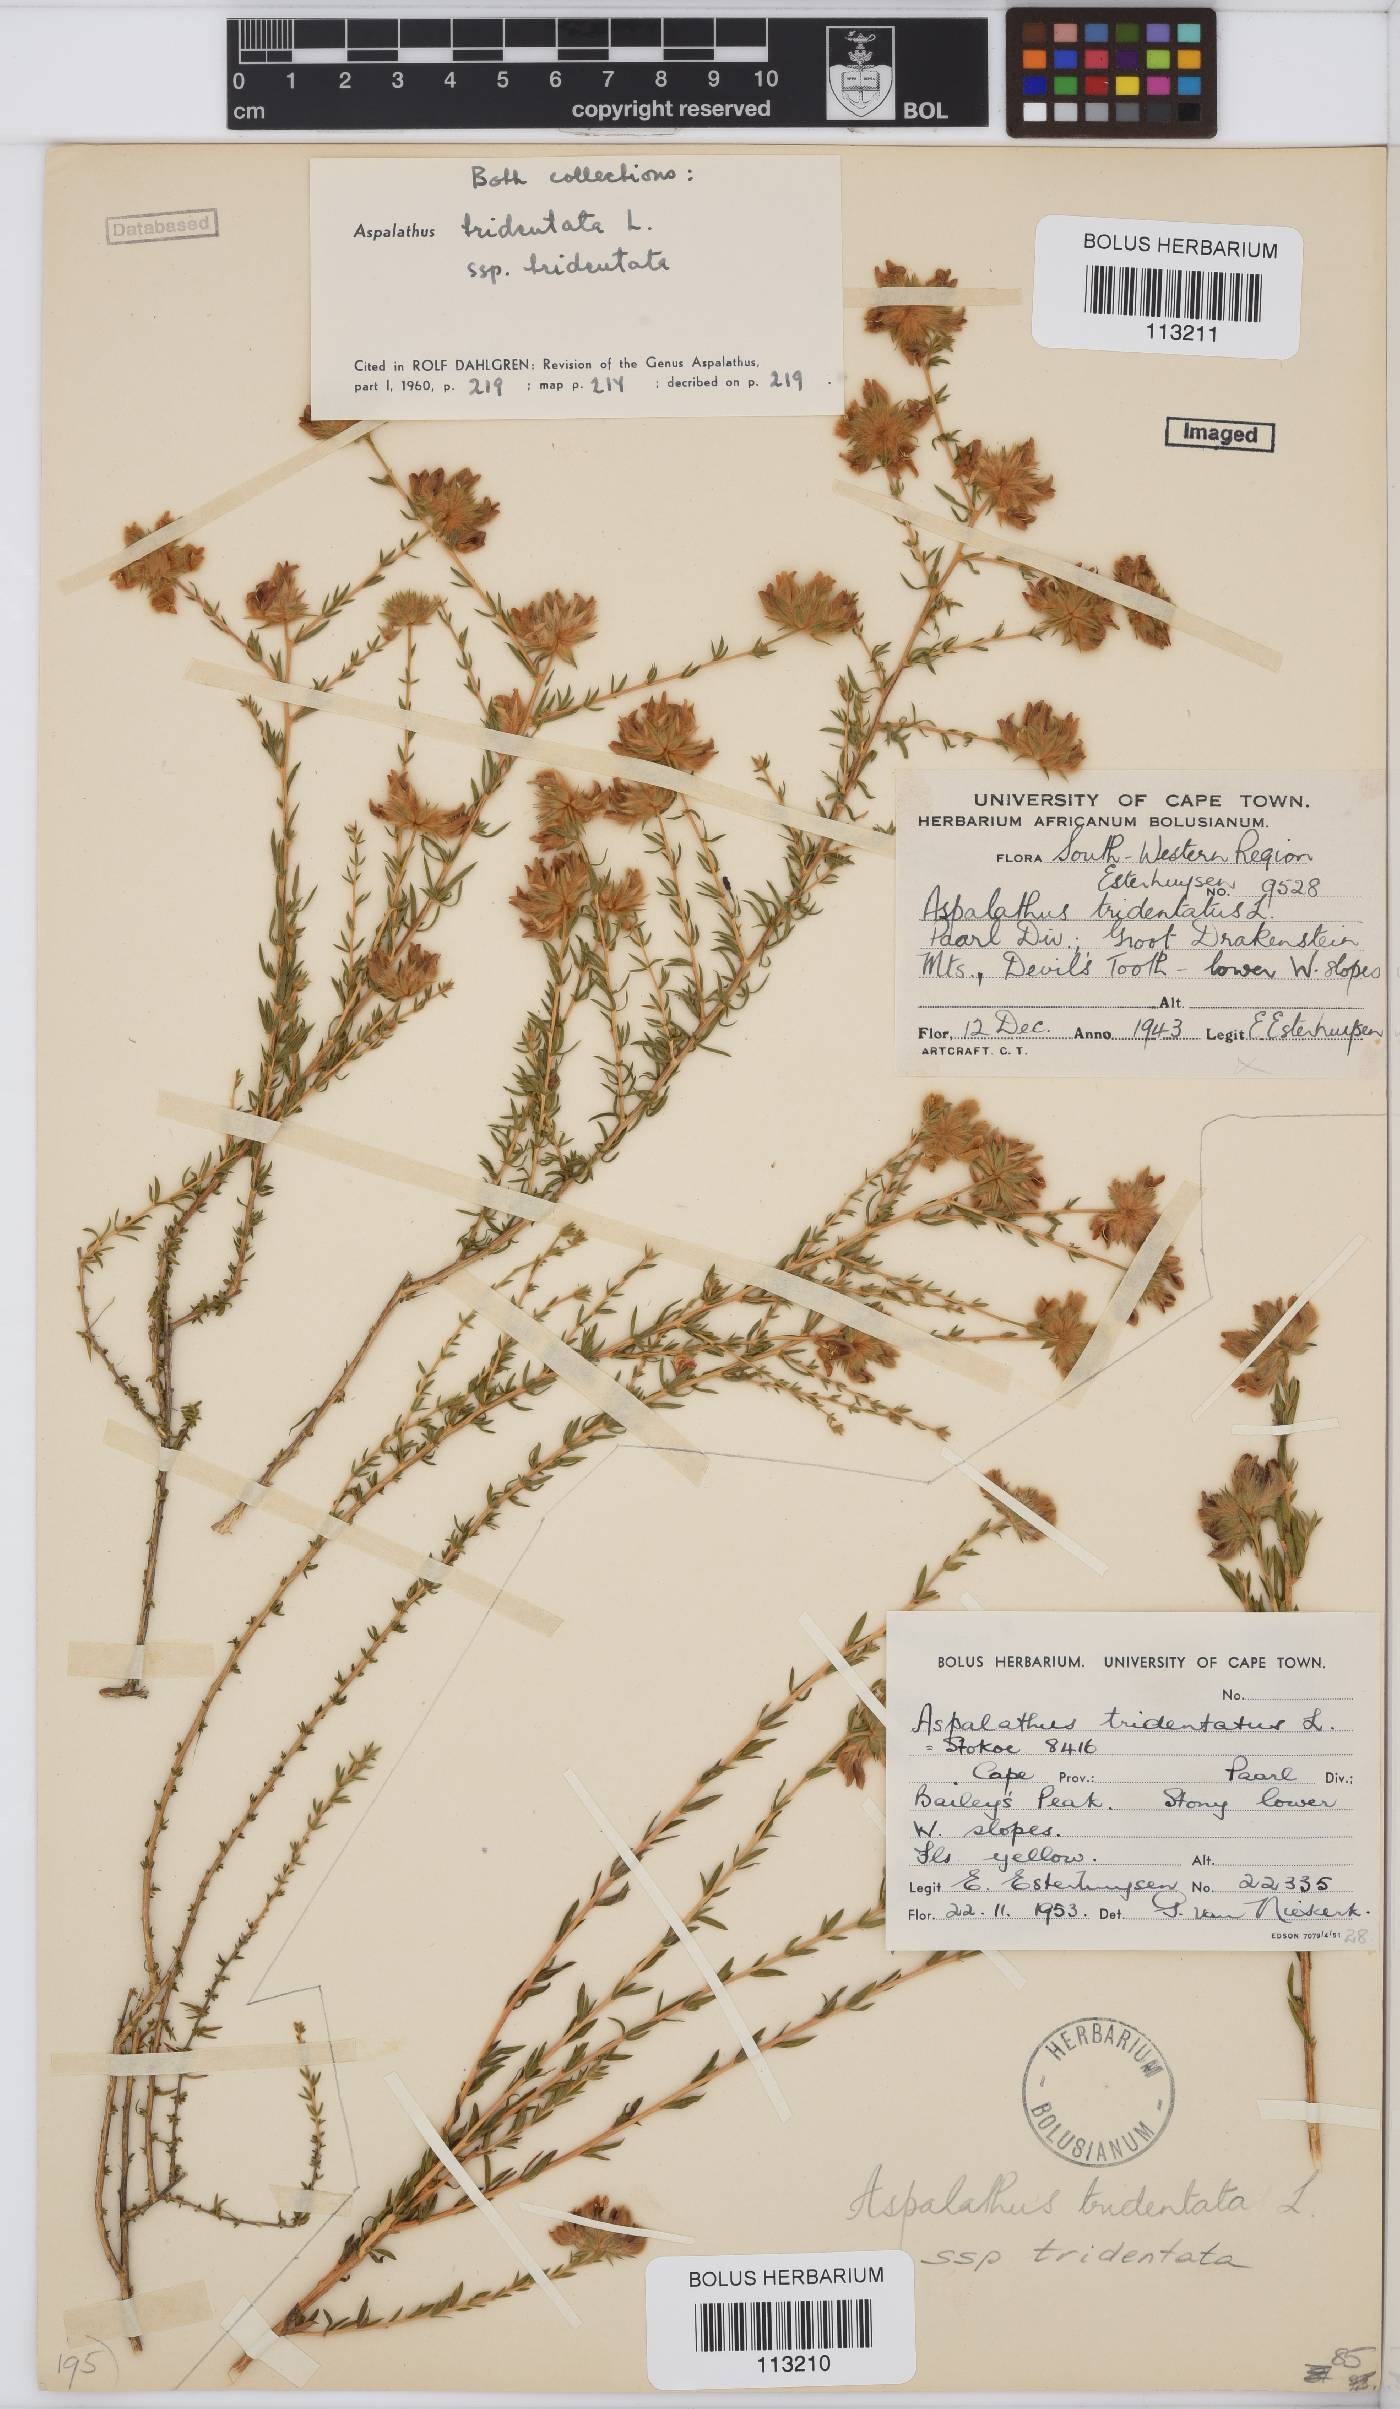 0 1 2 3 4 5 6 7 8 9 10
cm copyright reserved BOL
Databased
Both collections:
Aspalathus tridentata L.
ssp. tridentata
Cited in ROLF DAHLGREN: Revision of the Genus Aspalathus,
part I, 1960, p. 219 ; map p. 214 ; decribed on p. 219 .
BOLUS HERBARIUM
113211
Imaged
UNIVERSITY OF CAPE TOWN.
HERBARIUM AFRICANUM BOLUSIANUM.
FLORA South-Western Region
Esterhuysen NO. 9528
Aspalathus tridentatus L.
Paarl Div.; Groot Drakenstein
Mts., Devil's Tooth - lower W. slopes
Alt.
Flor. 12 Dec. Anno 1943 Legit E Esterhuysen
ARTCRAFT. C. T.
BOLUS HERBARIUM. UNIVERSITY OF CAPE TOWN.
No.
Aspalathus tridentatus L.
= Stokoe 8416
Cape Prov.: Paarl Div.:
Bailey's Peak. Stony lower
W. slopes.
Fls yellow. Alt.
Legit E. Esterhuysen No. 22335
Flor. 22.11.1953. Det. P. van Niekerk.
EDSON 7079/4/51 28
HERBARIUM
BOLUSIANUM
Aspalathus tridentata L.
ssp tridentata
BOLUS HERBARIUM
113210
195)
85